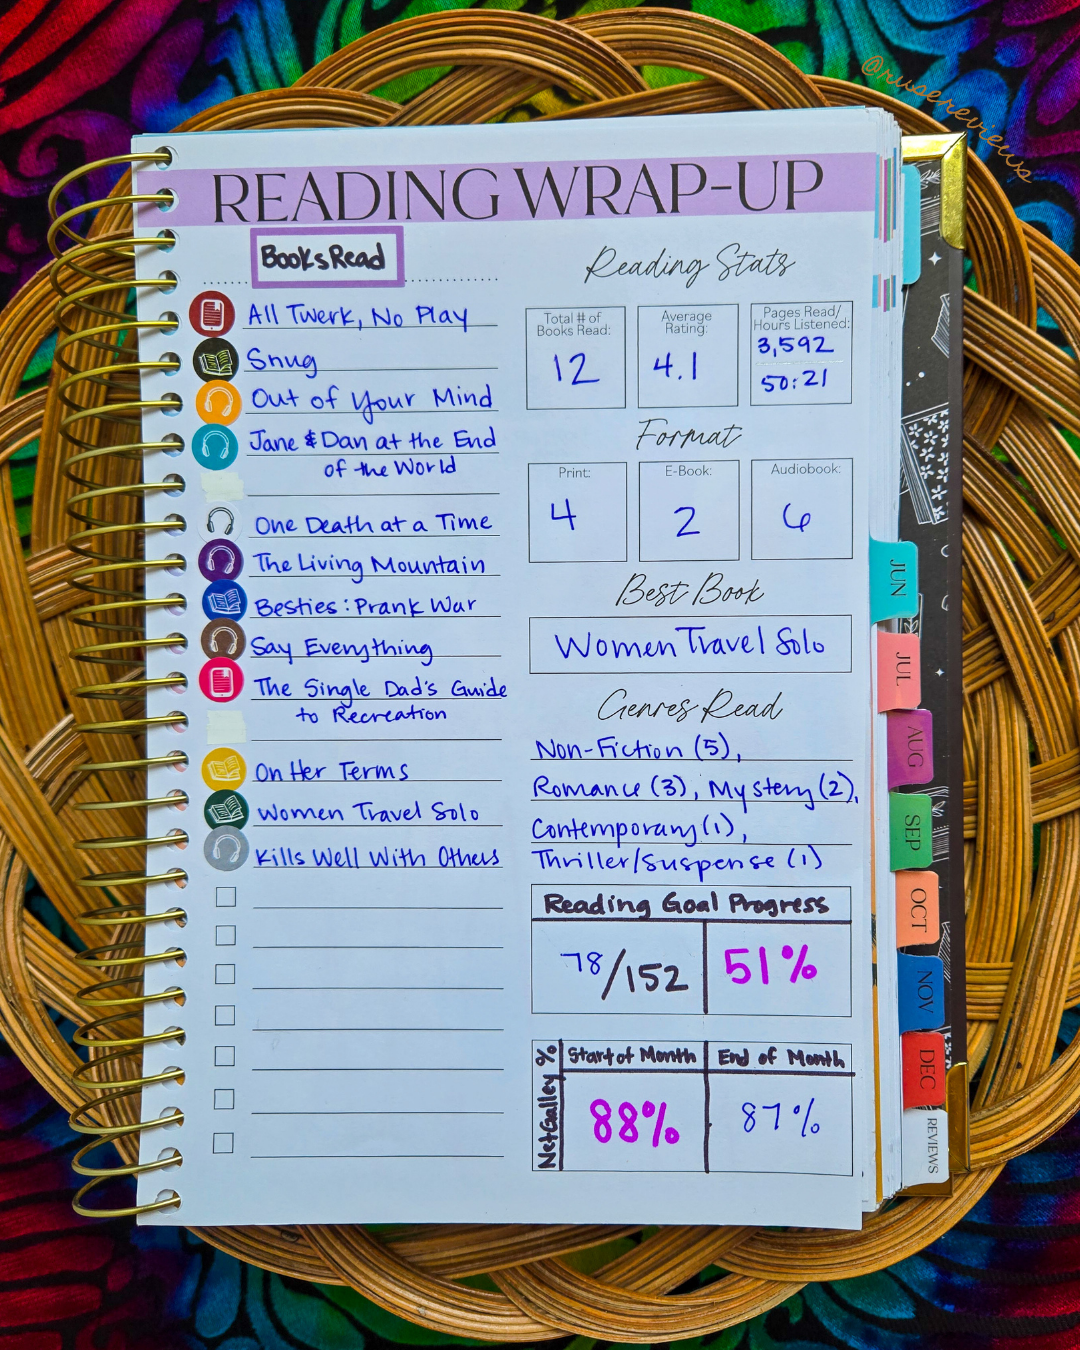 @rusereviews
READING WRAP-UP
Books Read
All Twerk, No Play
Snug
Out of Your Mind
Jane & Dan at the End
of the World
One Death at a Time
The Living Mountain
Besties: Prank War
Say Everything
The Single Dad's Guide
to Recreation
On Her Terms
Women Travel Solo
Kills Well With Others
Reading Stats
Total # of
Books Read:
12
Average
Rating:
4.1
Pages Read/
Hours Listened:
3,592
50:21
Format
Print:
4
E-Book:
2
Audiobook:
6
Best Book
Women Travel Solo
Genres Read
Non-Fiction (5),
Romance (3), Mystery (2),
Contemporary (1),
Thriller/Suspense (1)
Reading Goal Progress
78/152
51%
NetGalley %
Start of Month
End of Month
88%
87%
JUN
JUL
AUG
SEP
OCT
NOV
DEC
REVIEWS